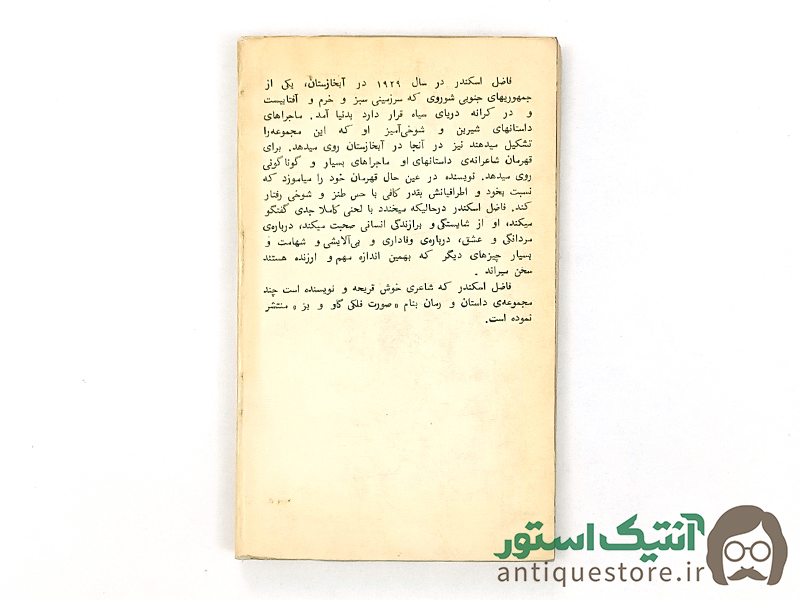 فاضل اسکندر در سال ۱۹۲۹ در آبخازستان، یکی از
جمهوریهای جنوبی شوروی که سرزمینی سبز و خرم و آفتابیست
و در کرانه دریای سیاه قرار دارد بدنیا آمد. ماجراهای
داستانهای شیرین و شوخی‌آمیز او که این مجموعه‌را
تشکیل میدهند نیز در آنجا در آبخازستان روی میدهد. برای
قهرمان شاعرانه‌ی داستانهای او ماجراهای بسیار و گوناگونی
روی میدهد. نویسنده در عین حال قهرمان خود را میاموزد که
نسبت بخود و اطرافیانش بقدر کافی با حس طنز و شوخی رفتار
کند. فاضل اسکندر درحالیکه میخندد با لحنی کاملا جدی گفتگو
میکند، او از شایستگی و برازندگی انسانی صحبت میکند، درباره‌ی
مردانگی و عشق، درباره‌ی وفاداری و بی‌آلایشی و شهامت و
بسیار چیزهای دیگر که بهمین اندازه مهم و ارزنده هستند
سخن میراند.
فاضل اسکندر که شاعری خوش قریحه و نویسنده است چند
مجموعه‌ی داستان و رمان بنام «صورت فلکی گاو و بز» منتشر
نموده است.
آنتیک استور
antiquestore.ir